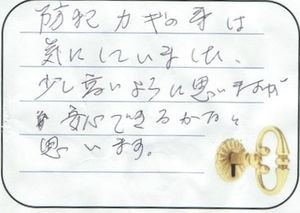 防犯カギの事は
気にしていました、
少し高いように思いますが
安心できるかなと
思います。